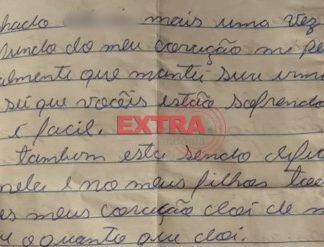 mais uma vez
fundo do meu coração mi pe
almente que mantei seu irma
sei que vocêis estão sofrendo
é facil.
EXTRA
tambem esta sendo dificil
nele e no meus filhos
meu coração doi de m
o quanto que doi.